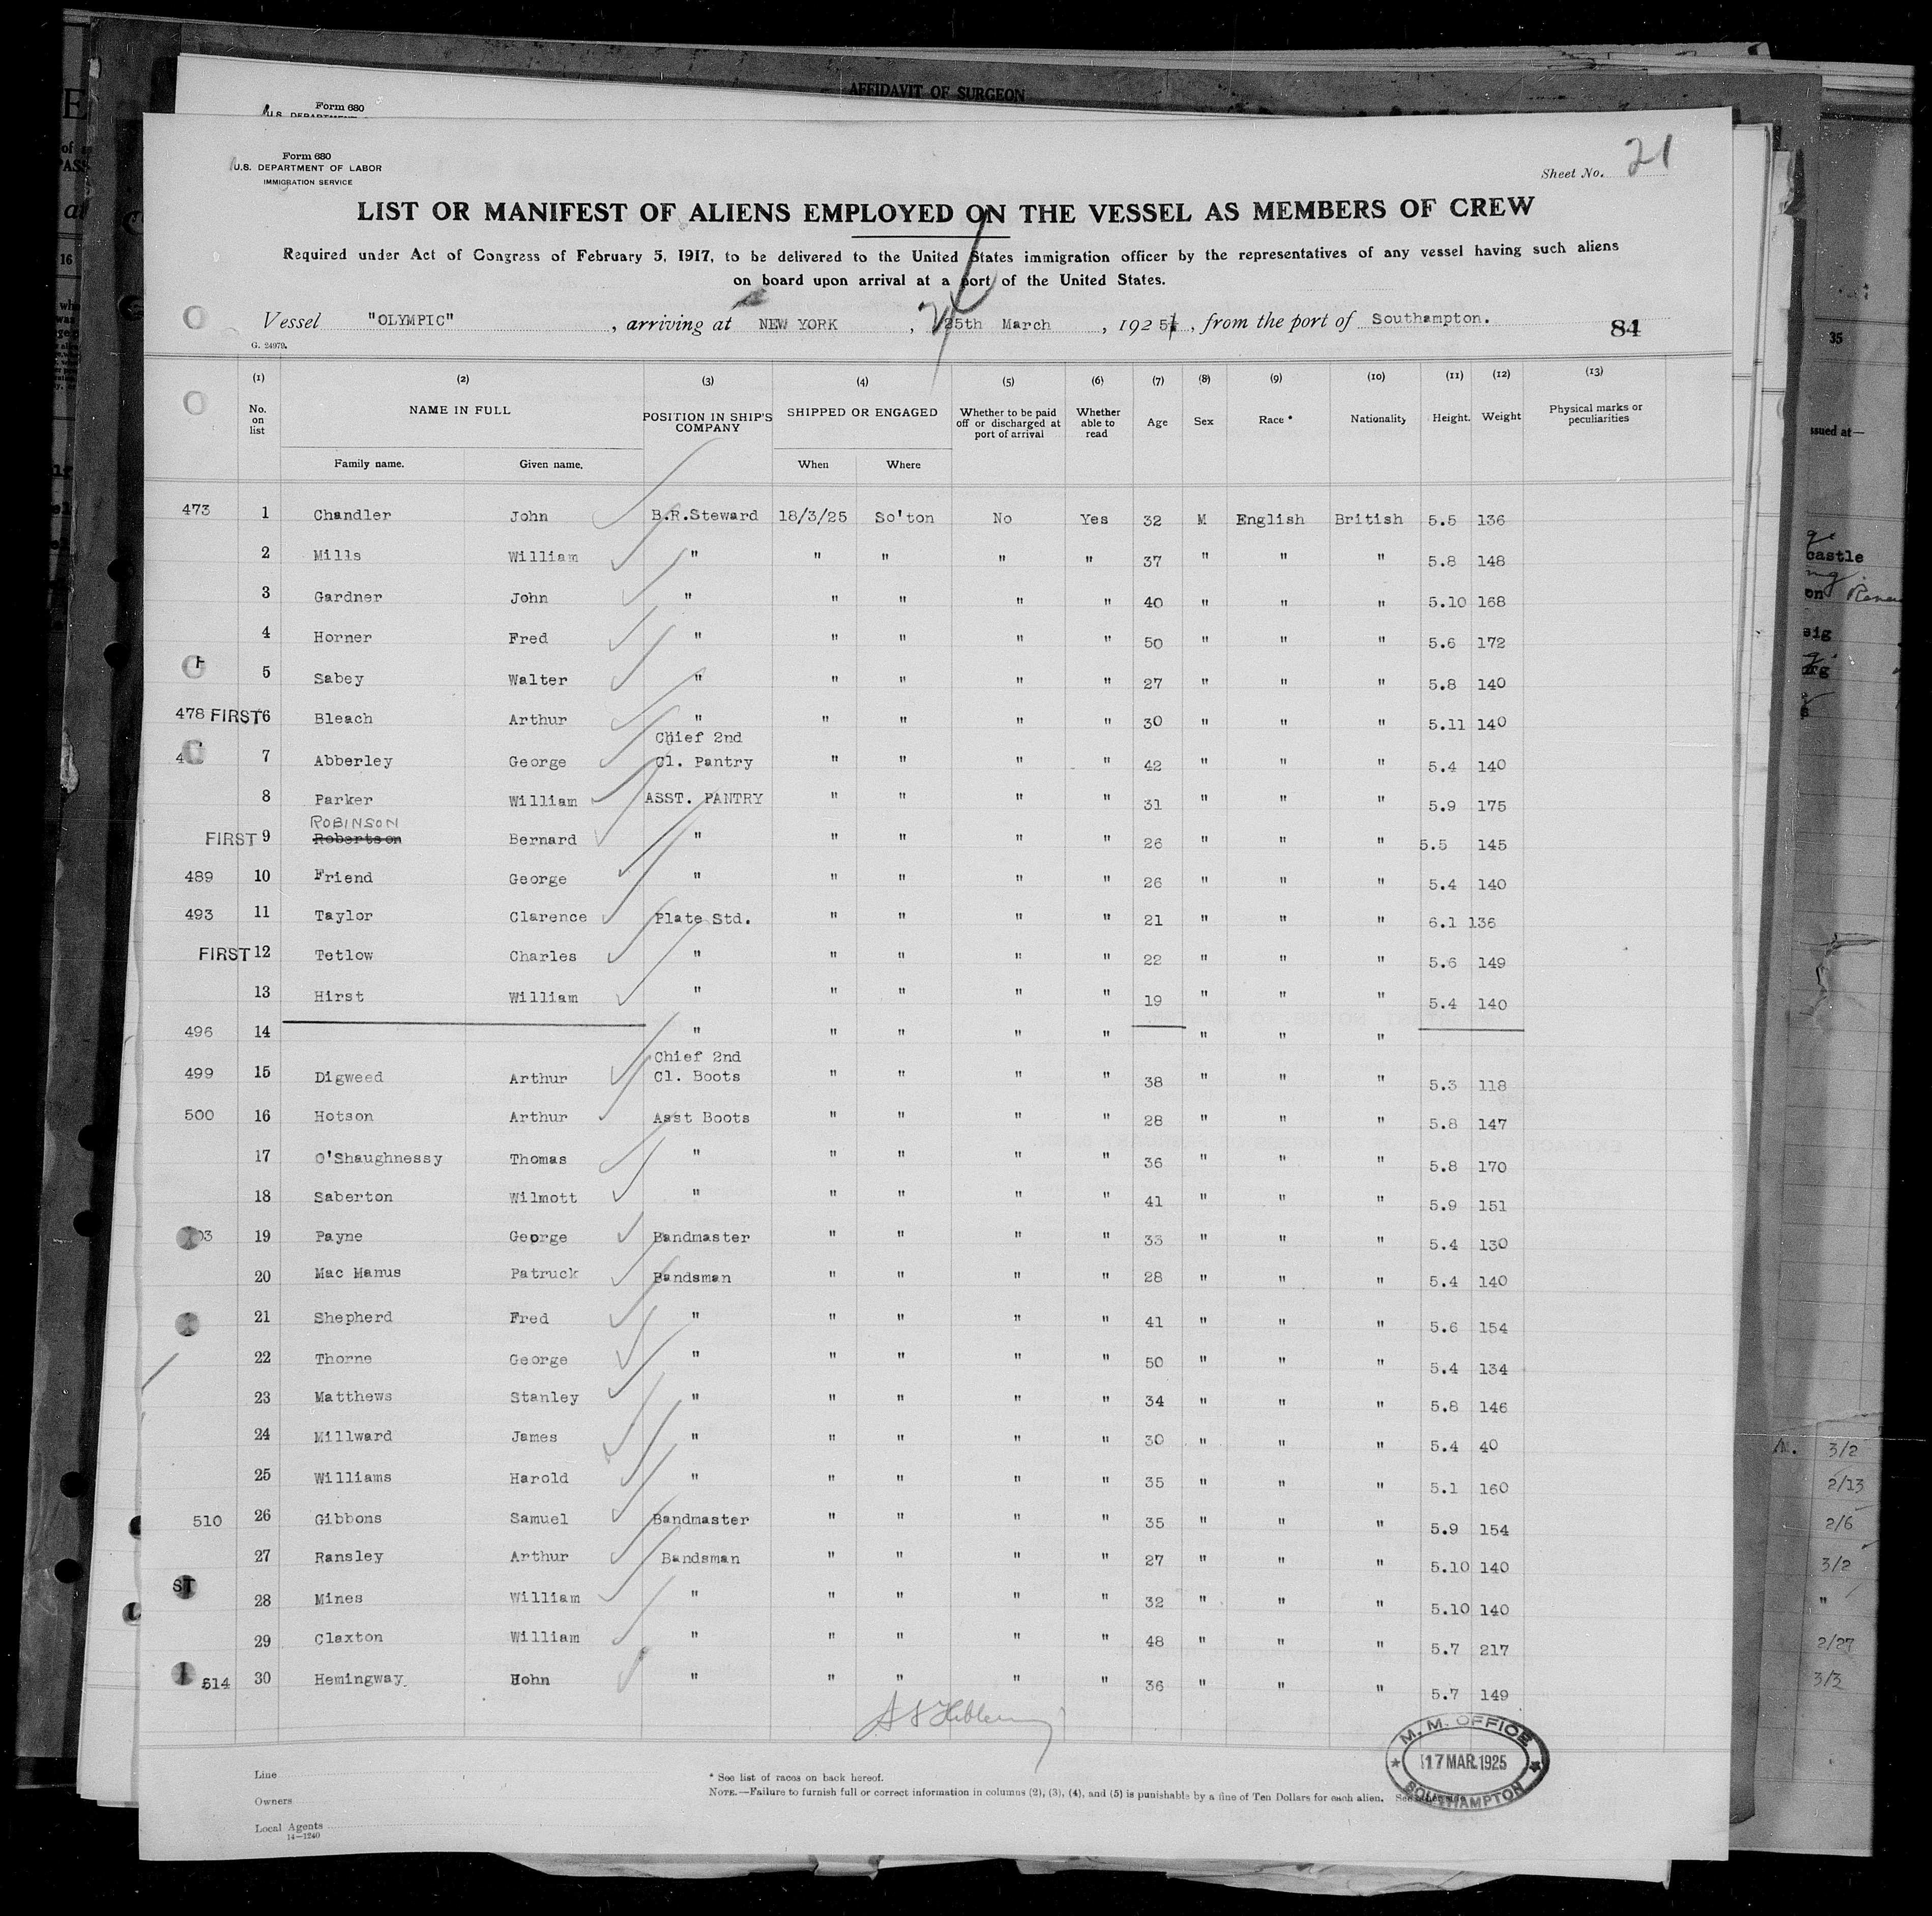 AFFIDAVIT OF SURGEON
Form 680
Form 680
U.S. DEPARTMENT OF LABOR
IMMIGRATION SERVICE
Sheet No. 21
LIST OR MANIFEST OF ALIENS EMPLOYED ON THE VESSEL AS MEMBERS OF CREW
Required under Act of Congress of February 5, 1917, to be delivered to the United States immigration officer by the representatives of any vessel having such aliens
on board upon arrival at a port of the United States.
Vessel "OLYMPIC", arriving at NEW YORK, 25th March, 1925, from the port of Southampton. 84
G. 24979.
(1) (2) (3) (4) (5) (6) (7) (8) (9) (10) (11) (12) (13)
No. on list NAME IN FULL POSITION IN SHIP'S COMPANY SHIPPED OR ENGAGED Whether to be paid off or discharged at port of arrival Whether able to read Age Sex Race * Nationality Height. Weight Physical marks or peculiarities
Family name. Given name. When Where
473 1 Chandler John B.R.Steward 18/3/25 So'ton No Yes 32 M English British 5.5 136
2 Mills William " " " " " 37 " " " 5.8 148
3 Gardner John " " " " " 40 " " " 5.10 168
4 Horner Fred " " " " " 50 " " " 5.6 172
5 Sabey Walter " " " " " 27 " " " 5.8 140
478 FIRST 6 Bleach Arthur " " " " " 30 " " " 5.11 140
Chief 2nd
7 Abberley George Cl. Pantry " " " " 42 " " " 5.4 140
8 Parker William ASST. PANTRY " " " " 31 " " " 5.9 175
ROBINSON
FIRST 9 Robertson Bernard " " " " " 26 " " " 5.5 145
489 10 Friend George " " " " " 26 " " " 5.4 140
493 11 Taylor Clarence Plate Std. " " " " 21 " " " 6.1 136
FIRST 12 Tetlow Charles " " " " " 22 " " " 5.6 149
13 Hirst William " " " " " 19 " " " 5.4 140
496 14 " " " " " " " "
Chief 2nd
499 15 Digweed Arthur Cl. Boots " " " " 38 " " " 5.3 118
500 16 Hotson Arthur Asst Boots " " " " 28 " " " 5.8 147
17 O'Shaughnessy Thomas " " " " " 36 " " " 5.8 170
18 Saberton Wilmott " " " " " 41 " " " 5.9 151
19 Payne George Bandmaster " " " " 33 " " " 5.4 130
20 Mac Manus Patruck Bandsman " " " " 28 " " " 5.4 140
21 Shepherd Fred " " " " " 41 " " " 5.6 154
22 Thorne George " " " " " 50 " " " 5.4 134
23 Matthews Stanley " " " " " 34 " " " 5.8 146
24 Millward James " " " " " 30 " " " 5.4 40
25 Williams Harold " " " " " 35 " " " 5.1 160
510 26 Gibbons Samuel Bandmaster " " " " 35 " " " 5.9 154
27 Ransley Arthur Bandsman " " " " 27 " " " 5.10 140
28 Mines William " " " " " 32 " " " 5.10 140
29 Claxton William " " " " " 48 " " " 5.7 217
514 30 Hemingway Hohn " " " " " 36 " " " 5.7 149
M. M. OFFICE
17 MAR. 1925
SOUTHAMPTON
Line
Owners
Local Agents
14—1240
* See list of races on back hereof.
NOTE.—Failure to furnish full or correct information in columns (2), (3), (4), and (5) is punishable by a fine of Ten Dollars for each alien. See other side
16
35
issued at—
castle
3/2
2/13
2/6
3/2
"
2/27
3/3